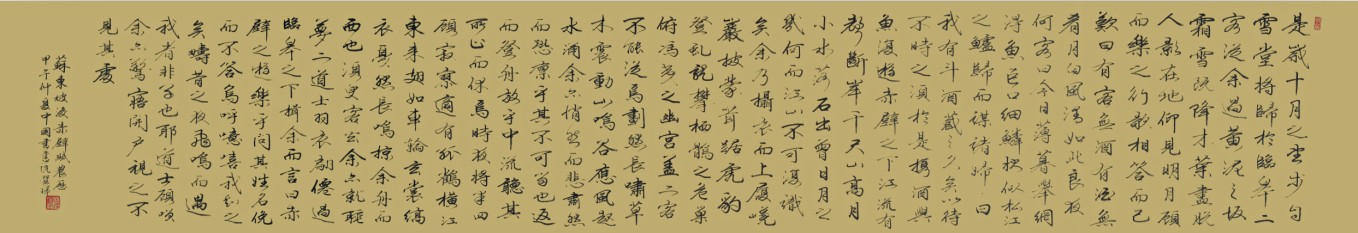 是歲十月之望步自
雪堂將歸於臨皋二
客從余過黃泥之坂
霜露既降木葉盡脫
人影在地仰見明月顧
而樂之行歌相答而已
歎曰有客無酒有酒無
肴月白風清如此良夜
何客曰今日薄暮舉網
得魚巨口細鱗狀似松江
之鱸歸而謀諸婦曰
我有斗酒藏之久矣以待
不時之須於是攜酒與
魚復遊赤壁之下江流有
聲斷岸千尺山高月
小水落石出曾日月之
幾何而江山不可復識
矣余乃攝衣而上履巉
巖披蒙茸踞虎豹
登虬龍攀栖鶻之危巢
俯馮夷之幽宮蓋二客
不能從焉劃然長嘯草
木震動山鳴谷應風起
水涌余亦悄然而悲肅然
而恐凜乎其不可留也返
而登舟放乎中流聽其
所止而休焉時夜將半四
顧寂寥適有孤鶴橫江
東來翅如車輪玄裳縞
衣戛然長鳴掠余舟而
西也須臾客去余亦就睡
夢二道士羽衣翩僊過
臨皋之下揖余而言曰赤
壁之遊樂乎問其姓名俛
而不答嗚呼噫嘻我知之
矣疇昔之夜飛鳴而過
我者非子也耶道士顧笑
余亦驚寤開戶視之不
見其處
蘇東坡後赤壁賦
甲午仲夏中國書畫院